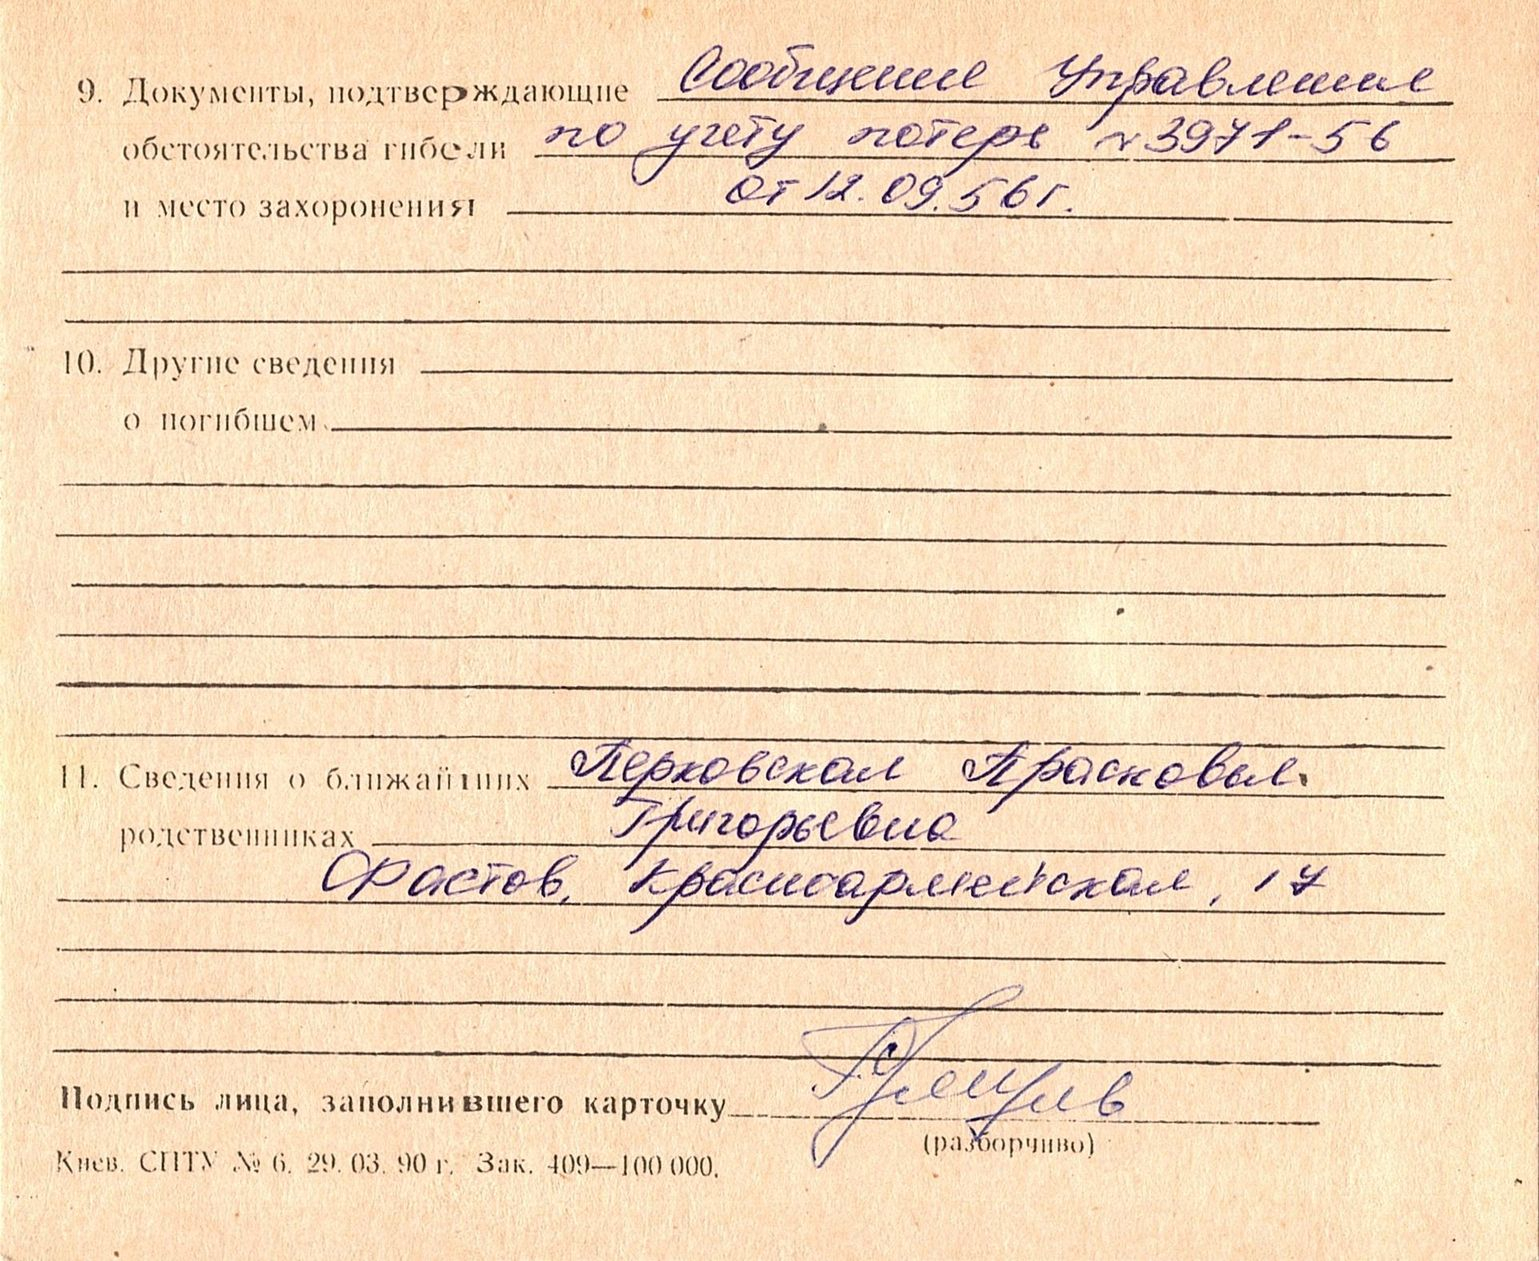 9. Документы, подтверждающие Сообщение Управления
обстоятельства гибели по учету потерь № 3971-56
и место захоронения от 12.09.56 г.
10. Другие сведения
о погибшем
11. Сведения о ближайших Перковская Прасковья
родственниках Григорьевна
Фастов, Красноармейская, 17
Подпись лица, заполнившего карточку
(разборчиво)
Киев. СПТУ № 6. 29. 03. 90 г. Зак. 409—100 000.